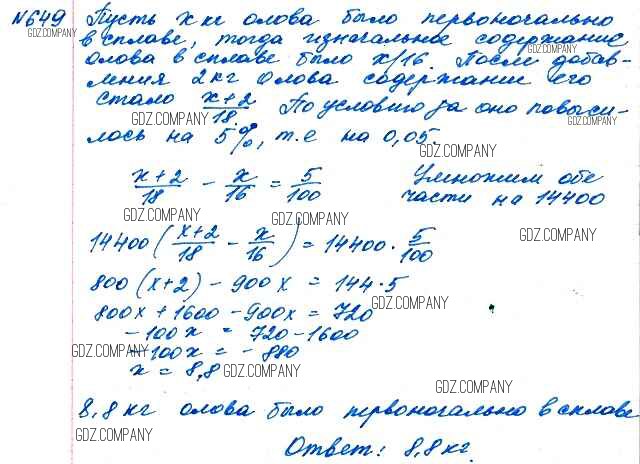 №649 Пусть x кг олова было первоначально
GDZ.COMPANY
в сплаве, тогда изначальное содержание
GDZ.COMPANY
олова в сплаве было x/16. После добав-
GDZ.COMPANY
ления 2 кг олова содержание его
стало (x+2)/18. По условию за оно повыси-
GDZ.COMPANY GDZ.COMPANY
лось на 5%, т.е на 0,05.
GDZ.COMPANY GDZ.COMPANY
(x+2)/18 - x/16 = 5/100 Умножим обе
части на 14400
GDZ.COMPANY GDZ.COMPANY
14400((x+2)/18 - x/16) = 14400 · 5/100
GDZ.COMPANY
800(x+2) - 900x = 144·5
800x + 1600 - 900x = 720
GDZ.COMPANY
-100x = 720-1600
-100x = -880
GDZ.COMPANY
x = 8,8
GDZ.COMPANY
GDZ.COMPANY
8,8 кг олова было первоначально в сплаве
GDZ.COMPANY
GDZ.COMPANY
Ответ: 8,8 кг.
GDZ.COMPANY